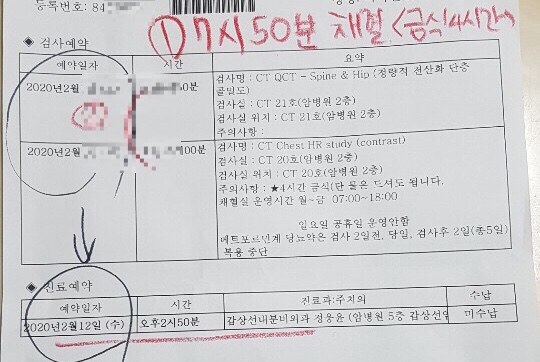 등록번호: 84
① 7시50분 채혈 <금식4시간>
◈ 검사예약
예약일자 시간 요약
2020년2월 50분 검사명 : CT QCT - Spine & Hip (정량적 전산화 단층 골밀도)
검사실 : CT 21호(암병원 2층)
검사실 위치 : CT 21호(암병원 2층)
주의사항 :
②
2020년2월 00분 검사명 : CT Chest HR study (contrast)
검사실 : CT 20호(암병원 2층)
검사실 위치 : CT 20호(암병원 2층)
주의사항 : ★4시간 금식(단 물은 드셔도 됩니다.
채혈실 운영시간 월~금 07:00~18:00
일요일 공휴일 운영안함
메트포르민계 당뇨약은 검사 2일전, 당일, 검사후 2일(총5일)
복용 중단
◈ 진료예약
예약일자 시간 진료과:주치의 수납
2020년2월12일 (수) 오후2시50분 갑상선내분비외과 정웅윤 (암병원 5층 갑상선암 미수납